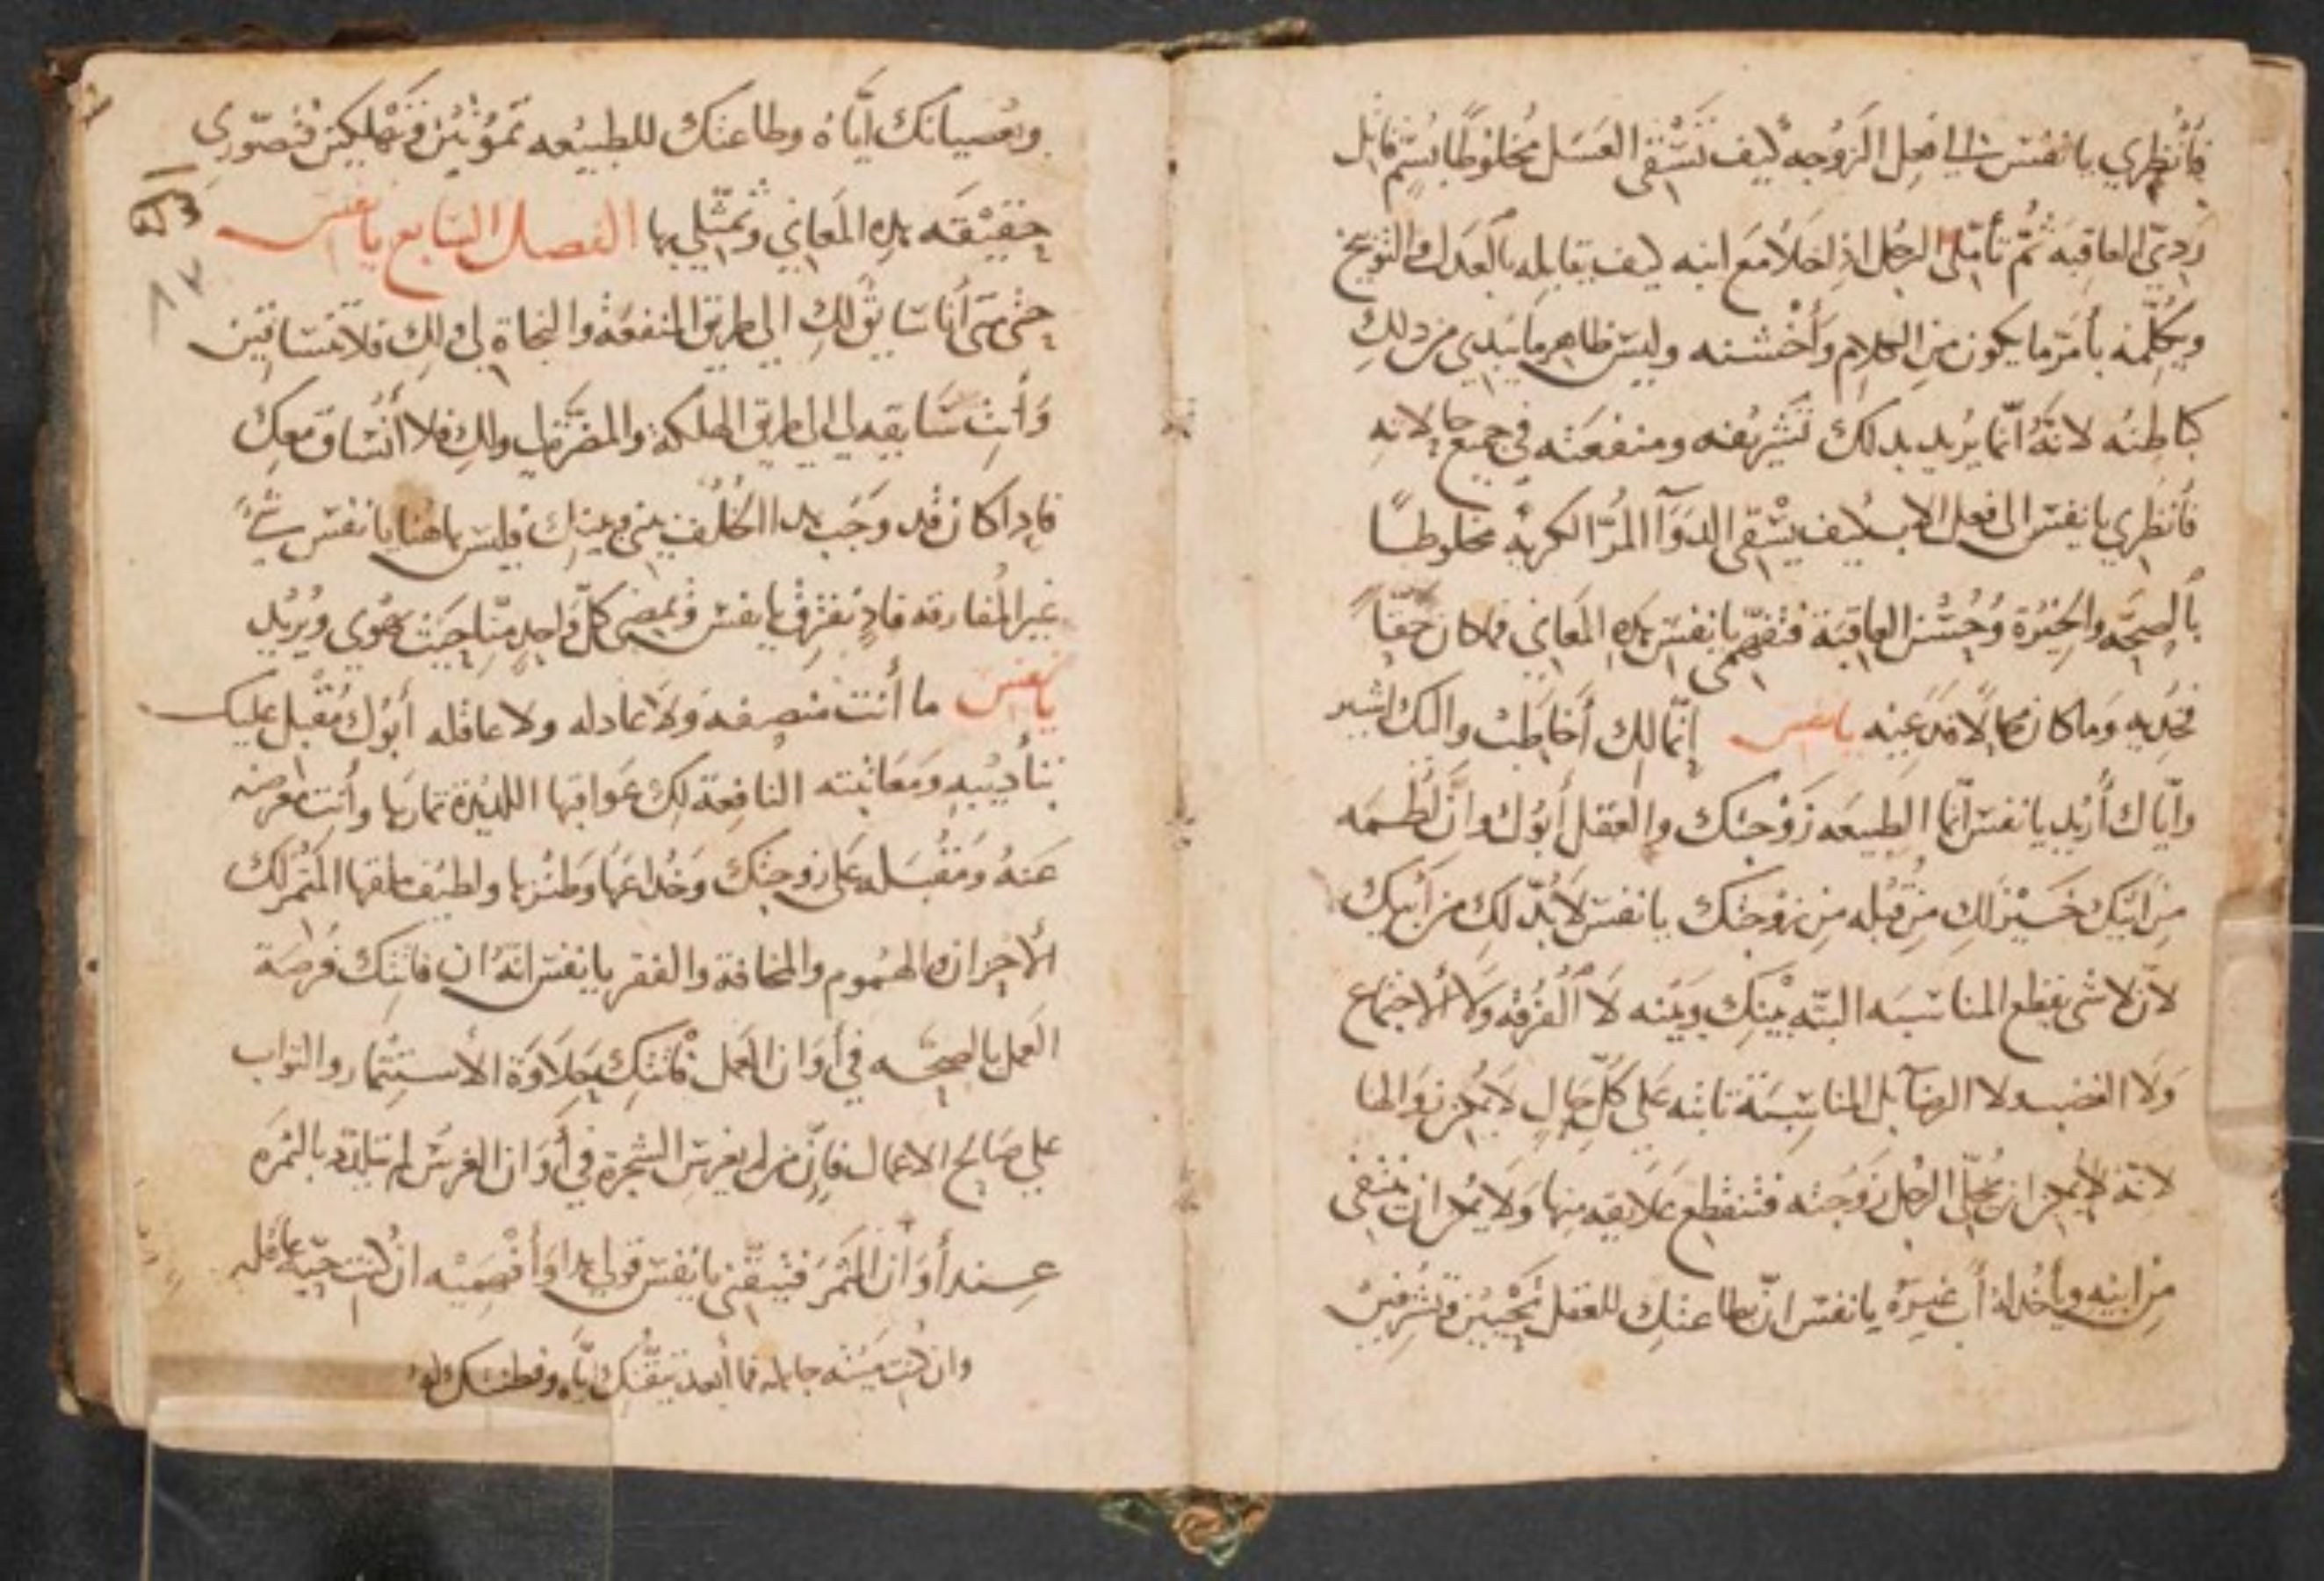 فأنظري يا نفس الي افعل الزوجه كيف تسقي العسل مخلوطًا بسم قاتل
ردي العاقبه ثم تأملي الرجل اذا خلا مع ابنه كيف يقابله بالعدل والتوبيخ
ويكلمه بأمر ما يكون من الكلام وأخشنه وليس ظاهر ما يبدي من ذلك
كباطنه لانه انما يريد بذلك تشريفه ومنفعته في جميع حالاته
فأنظري يا نفس الي فعل الاب كيف يسقي الدوآ المر الكريه مخلوطًا
بالصحه والخيرة وحسن العاقبة فتفهمي يا نفس هذه المعاني فما كان حقًا
فخذيه وما كان محالًا فدعيه يا نفس إنما لك أخاطب واليك اشير
واياك أريد يا نفس انما الطبيعه زوجتك والعقل أبوك وان لطمه
من ابيك خير لك من قبله من زوجتك يا نفس لا بد لك من أبيك
لان لا شي يقطع المناسبه البته بينك وبينه لا الفرقه ولا الاجتماع
ولا الغضب ولا الرضا بل المناسبة ثابته علي كل حال لا يمكن زوالها
لانه لا يمكن ان يخلي الرجل زوجته فتنقطع علايقه منها ولا يمكن ان ينتفي
من ابيه ويأخذ له أب غيره يا نفس ان بطاعتك للعقل تحيين وتشرفين
وبعصيانك اياه وطاعتك للطبيعه تموتين وتهلكين فتصوري
حقيقه هذه المعاني وتمثلي بها الفصل السابع يا نفس
حتي متى أنا سايق لك الي طريق المنفعة والنجاة لي ولك فلا تنساقين
وأنت سايقه لي الي طريق الهلكة والمضرة لي ولك فلا أنساق معك
فاذا كان قد وجب هذا الخلف بيني وبينك فليس هاهنا يا نفس شيء
غير المفارقه فاذا نفترق يا نفس ويمضي كل واحد منا حيث يهوي ويريد
يا نفس ما أنت منصفه ولا عادله ولا عاقله أبوك مقبل عليك
بتأديبه ومعاتبته النافعة لك عواقبها اللذيذة ثمارها وأنت معرضه
عنه ومقبله على زوجتك وخداعها وطنزها ولطيف ملقها المثمر لك
الأحزان والهموم والمخافة والفقر يا نفس انه ان فاتتك فرصة
العمل بالصحه في أوان العمل فاتتك حلاوة الاستثمار والثواب
علي صالح الاعمال فإن من لم يغرس الشجرة في أوان الغرس لم يتلذذ بالثمره
عند أوان الثمر فتيقني يا نفس قولي هذا وأفهميه ان كنت حيه عاقله
وان كنت ميته جاهله فما أبعد تيقنك اياه وفطنتك له